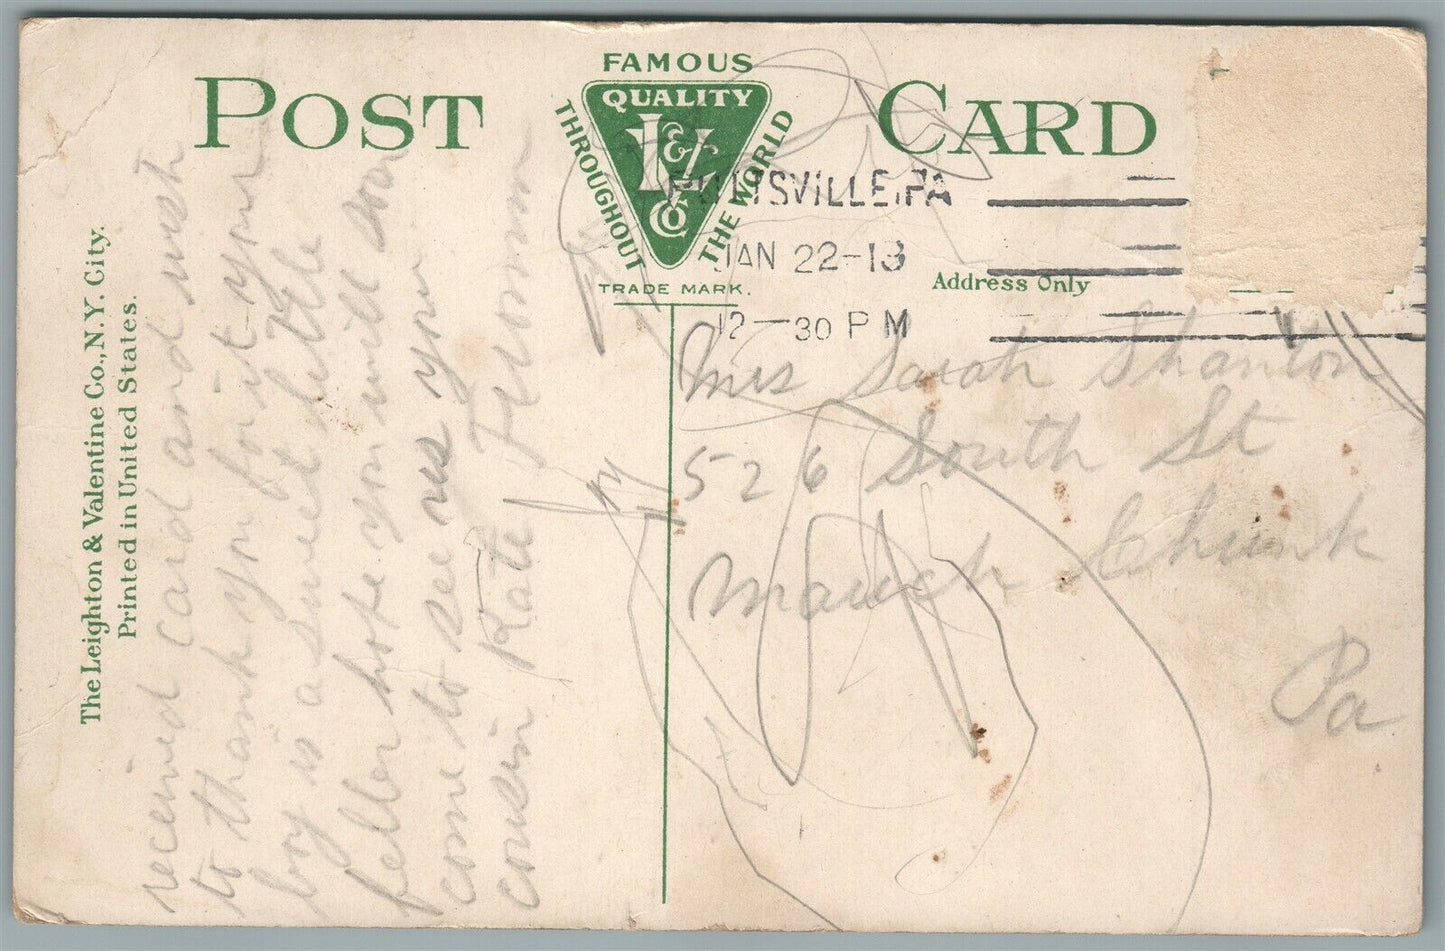 POST CARD
FAMOUS
QUALITY
THROUGHOUT
THE WORLD
L&V
Co
TRADE MARK.
The Leighton & Valentine Co., N.Y. City.
Printed in United States.
Address Only
SVILLE, PA
JAN 22-13
12-30 PM
received card and wish
to thank you for it your
boy is a sweet little
feller hope you will soon
come to see us your
cousin Kate
Mrs Sarah Shanton
526 South St
Mauch Chunk
Pa